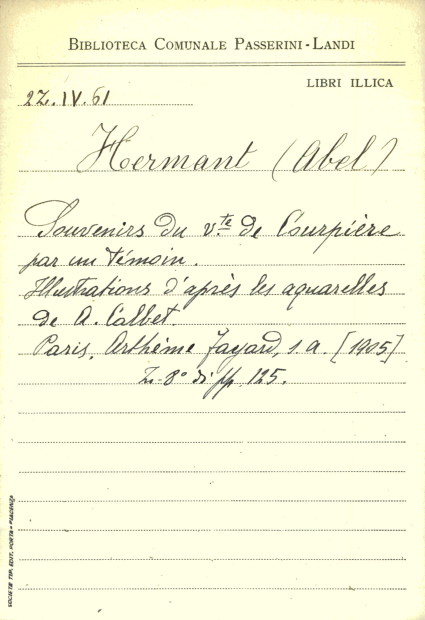 BIBLIOTECA COMUNALE PASSERINI-LANDI
LIBRI ILLICA
2Z.IV.61
Hermant (Abel)
Souvenirs du v.te de Courpière
par un témoin.
Illustrations d'après les aquarelles
de A. Calbet.
Paris, Arthème Fayard, s.a. [1905]
in-8° di pp. 125.
SOCIETÀ TIP. EDIT. PORTA - PIACENZA